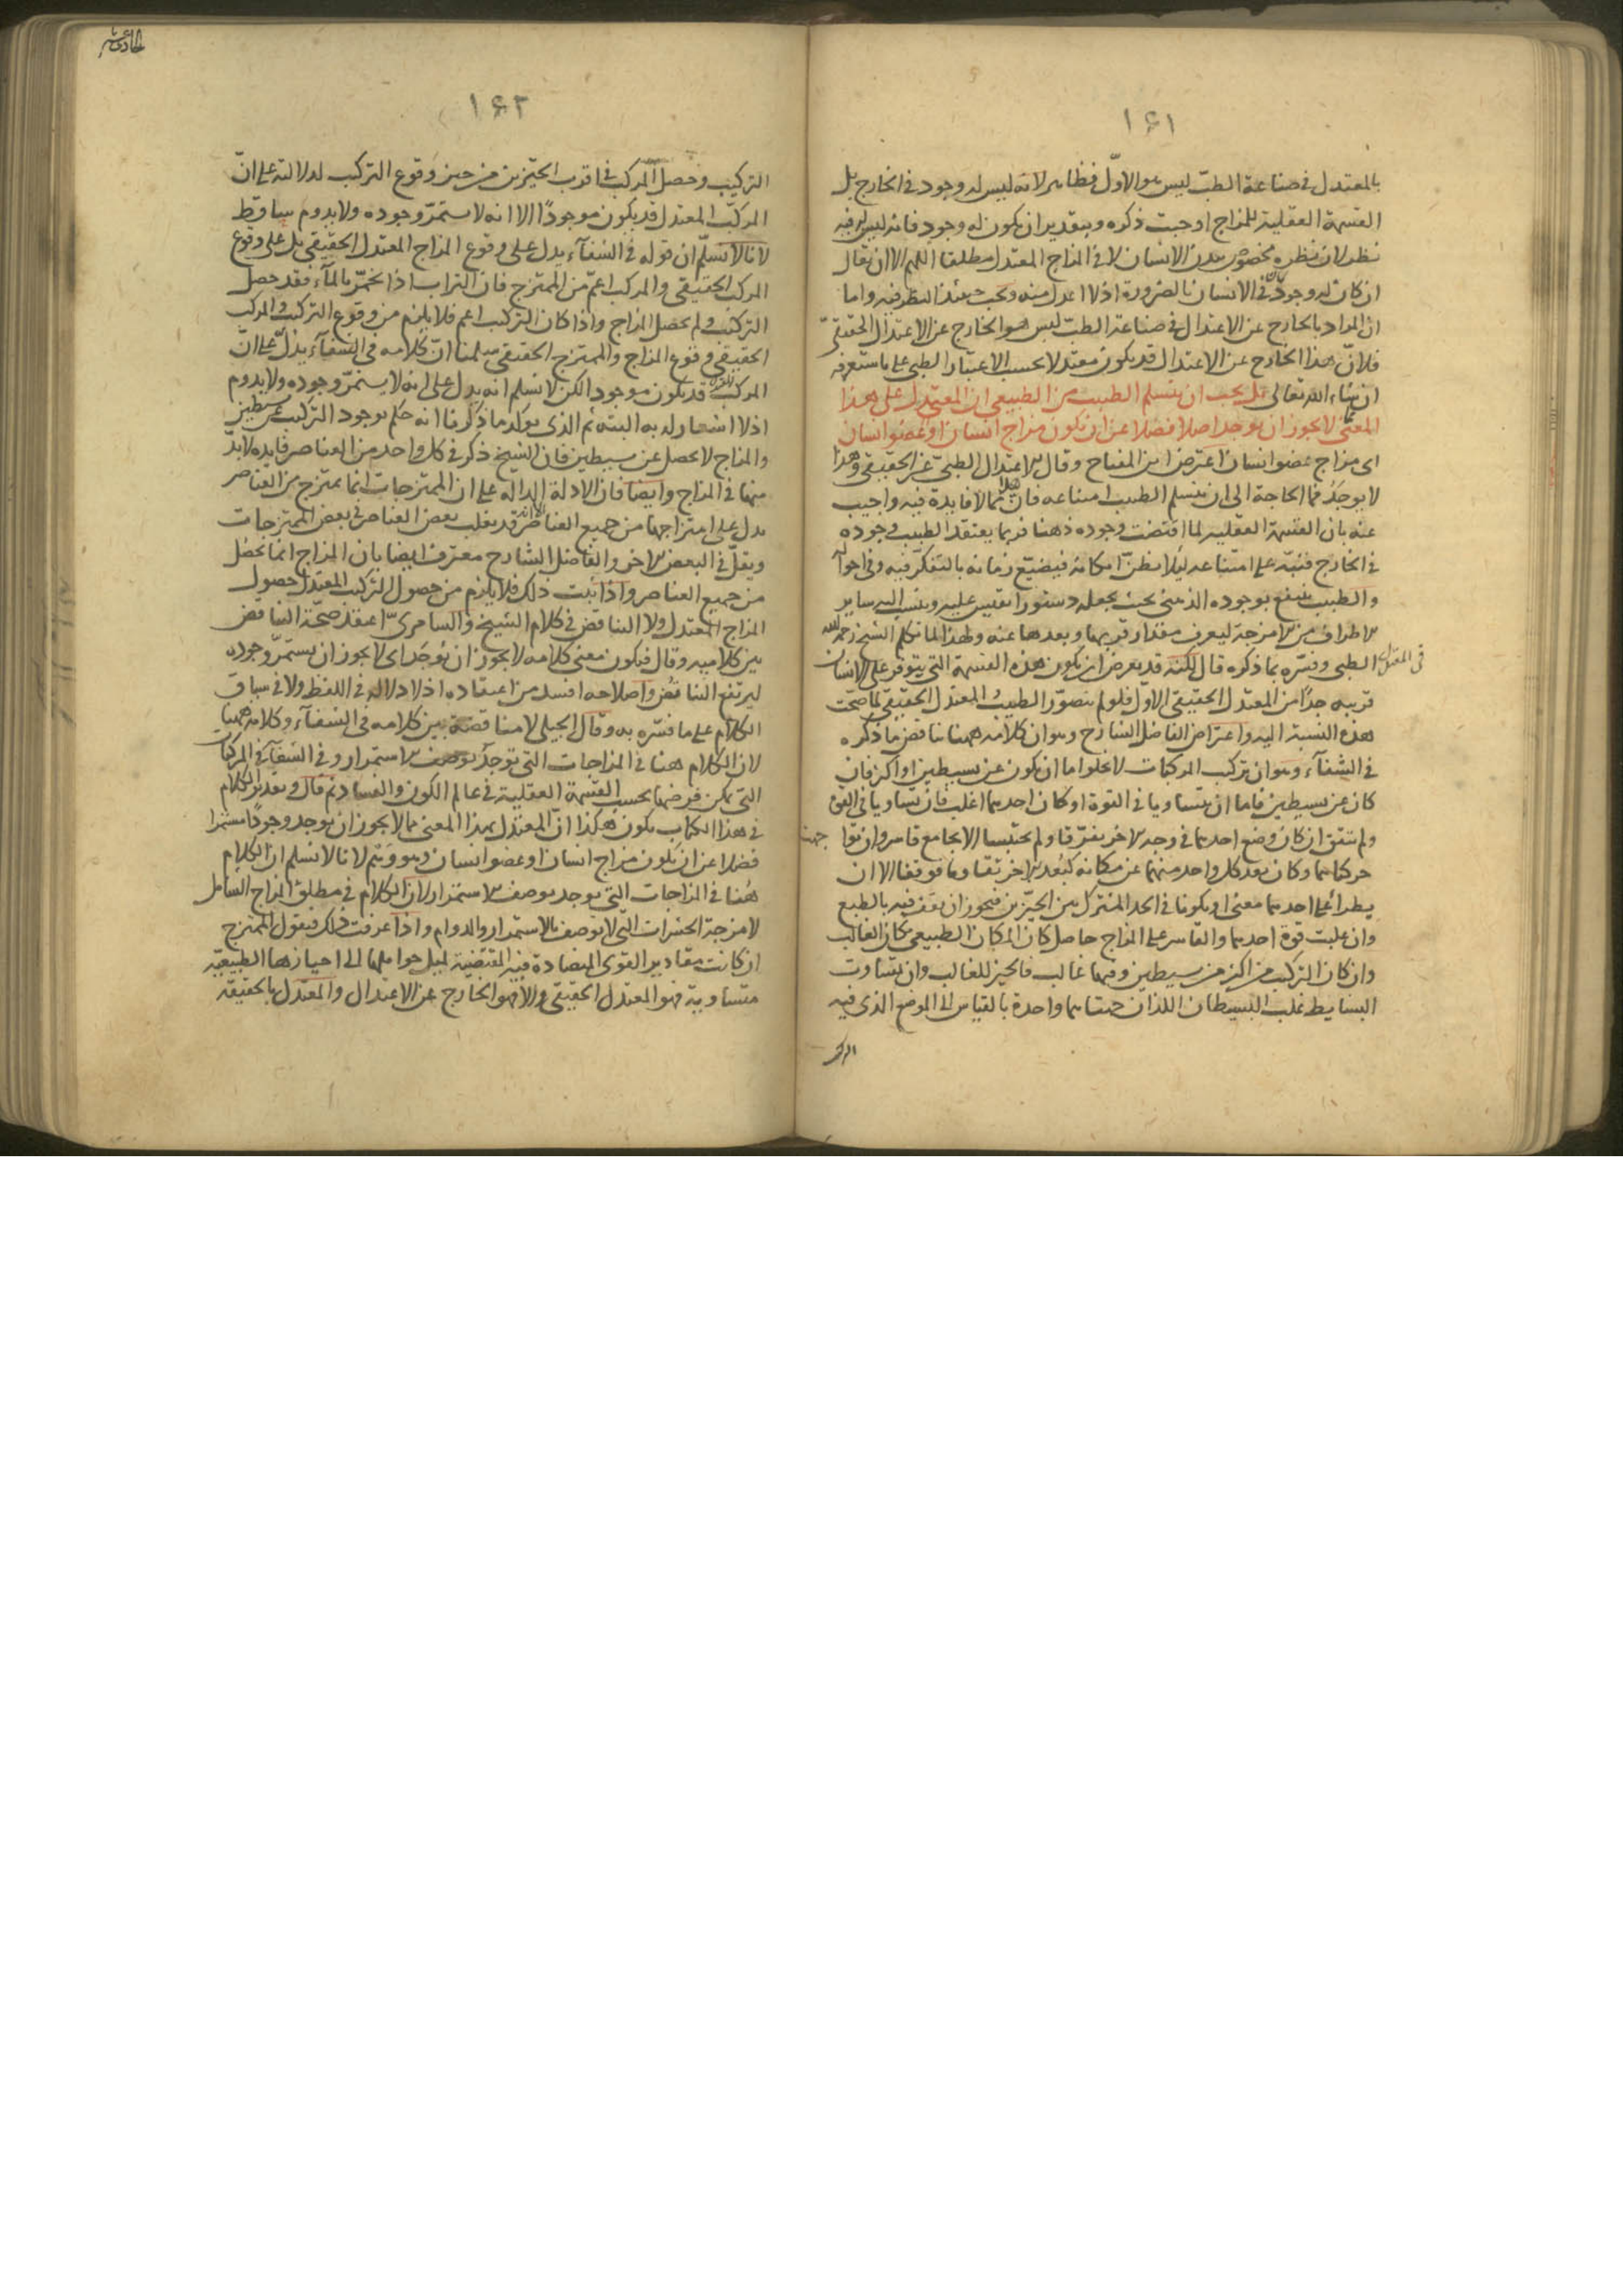 ١٦١
بالمعتدل في صناعة الطبّ ليس هو الاوّل فظاهر لانه ليس له وجود في الخارج بل
القسمة العقلية للمزاج اوجبت ذكره وبتقدير ان يكون له وجود فانه ليس له فيه
نظر لان نظره مخصوص ببدن الانسان لا في المزاج المعتدل مطلقا اللهم الا ان يقال
ان كان له وجود في الانسان بالضرورة اذ لا اعدل منه وبحث عند النظر فيه واما
ان المراد بالخارج عن الاعتدال في صناعة الطبّ ليس هو الخارج عن الاعتدال الحقيقيّ
فلانّ هذا الخارج عن الاعتدال قد يكون معتدلا بحسب الاعتبار الطبي على ما ستعرفه
ان شاء الله تعالى بل يجب ان يتسلم الطبيب من الطبيعي ان المعتدل على هذا
المعنى لا يجوز ان يوجد اصلا فضلا عن ان يكون مزاج انسان او عضو انسان
اى مزاج عضو انسان اعترض ابن المفتاح وقال الاعتدال الطبيّ غير الحقيقي وهذا
لا يوجد فما الحاجة الى ان يتسلم الطبيب امتناعه فان هذا مما لا فايدة فيه واجيب
عنه بان القسمة العقليه لما اقتضت وجوده ذهنا فربما يعتقد الطبيب وجوده
في الخارج فنبّه على امتناعه ليلا يظنّ امكانه فيضيّع زمانه بالتفكّر فيه وفي احواله
والطبيب ينتفع بوجوده الذهنى بحيث يجعله دستورا يقيس عليه وينسب اليه ساير
الاطراف من الامزجة ليعرف مقدار قربها وبعدها عنه ولهذا لما تكلم الشيخ رحمه الله
في المعتدل الطبي وفسّره بما ذكره قال لكنه قد يعرض ان يكون هذه القسمة التي يتوفر على الانسان
قريبه جدًا من المعتدل الحقيقي الاول فلو لم يتصوّر الطبيب المعتدل الحقيقي لما صحّت
هذه النسبة اليه واعتراض الفاضل الشارح وهو ان كلامه ههنا يناقض ما ذكره
في الشفآء وهو ان تركيب المركبات لا يخلوا اما ان يكون عن بسيطين او اكثر فان
كان عن بسيطين فاما ان يتساويا في القوة او كان احدهما اغلب فان تساويا في القوى
ولم يتفق ان كان وضع احدهما في وجه الاخر تفرّقا ولم يحتبسا الا بجامع قاسر وان توا
جهت
حركتاهما وكان بعد كل واحد منهما عن مكانه كبُعد الاخر تقاوما فوقفا الا ان
يطرأ على احدهما معنى او يكونا في الحد المشترك بين الحيّزين فيجوز ان يقف فيه بالطبع
وان غلبت قوة احدهما والقاسر على المزاج حاصل كان المكان الطبيعى مكان الغالب
وان كان التركيب من اكثر من بسيطين وفيها غالب فالحيز للغالب وان تساوت
البسايط غلب البسيطان اللذان جهتاهما واحدة بالقياس الى الموضع الذي فيه
١٦٢
التركيب وحصل المركب في اقرب الحيّزين من حيز وقوع التركيب لدلالته على انّ
المركب المعتدل قد يكون موجودًا الا انه لا يستمرّ وجوده ولا يدوم ساقط
لانا لا نسلّم ان قوله في الشفآء يدل على وقوع المزاج المعتدل الحقيقي بل على وقوع
المركب الحقيقي والمركب اعمّ من الممتزج فان التراب اذا تخمّر بالمآء فقد حصل
التركيب ولم يحصل المزاج واذا كان التركيب اعم فلا يلزم من وقوع التركيب والمركب
الحقيقي وقوع المزاج والممتزج الحقيقي سلمنا انّ كلامه في الشفآء يدلّ على انّ
المركب قد يكون موجودا لكن لا نسلم انه يدل على انه لا يستمرّ وجوده ولا يدوم
اذ لا اشعار له به البتة ثم الذي يؤكد ما ذكرنا انه حكم بوجود التركيب عن بسيطين
والمزاج لا يحصل عن بسيطين فان الشيخ ذكر في كل واحد من العناصر فايده لا بدّ
منها في المزاج وايضا فان الادلة الداله على ان الممتزجات انما يمتزج من العناصر
يدل على امتزاجها من جميع العناصر الا انه قد يغلب بعض العناصر في بعض الممتزجات
ويقلّ في البعض الاخر والفاضل الشارح معترف ايضا بان المزاج انما يحصل
من جميع العناصر واذا ثبت ذلك فلا يلزم من حصول المركب المعتدل حصول
المزاج المعتدل ولا التناقض في كلام الشيخ والسامريّ اعتقد صحّة التناقض
بين كلاميه وقال فيكون معنى كلامه لا يجوز ان يوجد اى لا يجوز ان يستمرّ وجوده
ليرتفع التناقض واصلاحه افسد من اعتقاده اذ لا دلاله في اللفظ ولا في سياق
الكلام على ما فسّره به وقال الجيلي لا مناقضة بين كلامه في الشفآء وكلامه ههنا
لان الكلام هنا في المزاجات التي توجد بوصف الاستمرار وفي الشفآء في المركبات
التي يمكن فرضها بحسب القسمة العقلية في عالم الكون والفساد ثم قال وتقدير الكلام
في هذا الكتاب يكون هكذا انّ المعتدل بهذا المعنى مما لا يجوز ان يوجد وجودًا مستمرا
فضلا عن ان يكون مزاج انسان او عضو انسان وهو وَهم لانا لا نسلم ان الكلام
هُنا في المزاجات التي يوجد بوصف الاستمرار لان الكلام في مطلق المزاج الشامل
لامزجة الحشرات التي لا توصف بالاستمرار والدوام واذا عرفت ذلك فنقول الممتزج
ان كانت مقادير القوى المتضادة فيه المقتضية لميل حواملها الى احيازها الطبيعيّة
متساوية فهو المعتدل الحقيقي والا فهو الخارج عن الاعتدال والمعتدل بالحقيقة